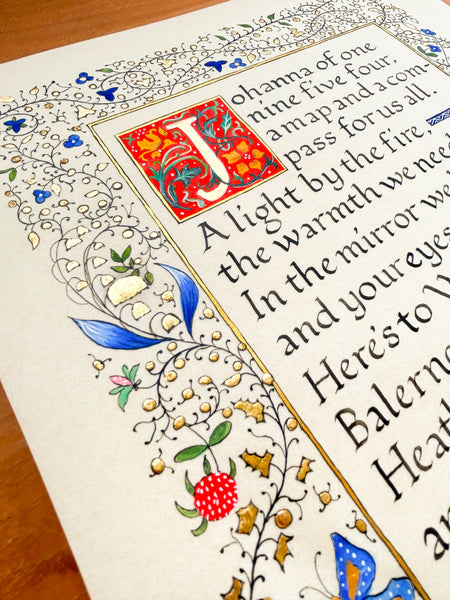 Johanna of one
nine five four,
a map and a com-
pass for us all.
A light by the fire,
the warmth we need
In the mirror we
and your eyes
Here's to
Balerno
Heath